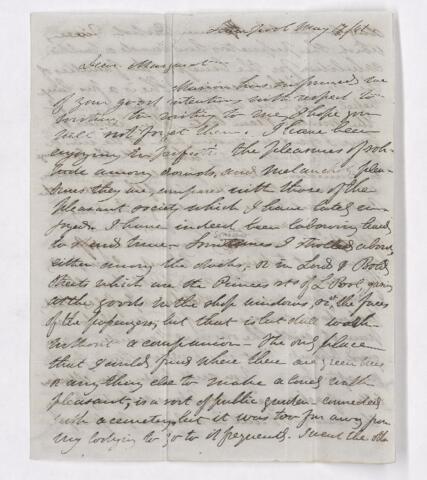 Liverpool May
Dear Margaret
Marion has informed me
of your good intentions with respect to
writing to me, I hope you
will not forget them. I have been
enjoying the pleasures of soli-
tude among crowds, and melancholy plea-
sures they are, compared with those of the
pleasant society which I have lately en-
joyed. I have indeed been labouring hard
to spend time - Sometimes I strolled about
either among the docks, or in Lord & Bold
Streets which are the Princes st of L Pool, gazing
at the goods in the shop windows, or the faces
of the passengers, but that is but dull work
without a companion - The only place
that I could find where there are green trees
or any thing else to make a lonely walk
pleasant, is a sort of public garden connected
with a cemetery, but it was too far away from
my lodging to go to it frequently. I went the other